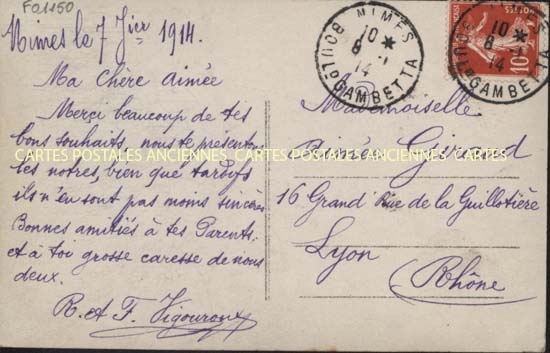 FO1150
Nimes le 7 Jier 1914.
Ma Chère aimée
Merci beaucoup de tes
bons souhaits, nous te présentons
les notres, bien que tardifs
ils n'en sont pas moins sincères
Bonnes amitiés à tes Parents.
et à toi grosse caresse de nous
deux.
R. et F. Vigouroux
NIMES
10 *
8 - 1
14
BOULd GAMBETTA
10
8 - 1
14
BOULd GAMBETTA
POSTES
10c
Mademoiselle
Aimée Giraud
16 Grand Rue de la Guillotière
Lyon
Rhône
CARTES POSTALES ANCIENNES CARTES POSTALES ANCIENNES CARTES